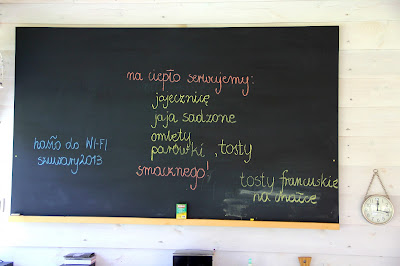 na ciepło serwujemy:
jajecznicę
jaja sadzone
omlety
parówki , tosty
smacznego!
hasło do WI-FI
skwary2013
tosty francuskie
na chałce